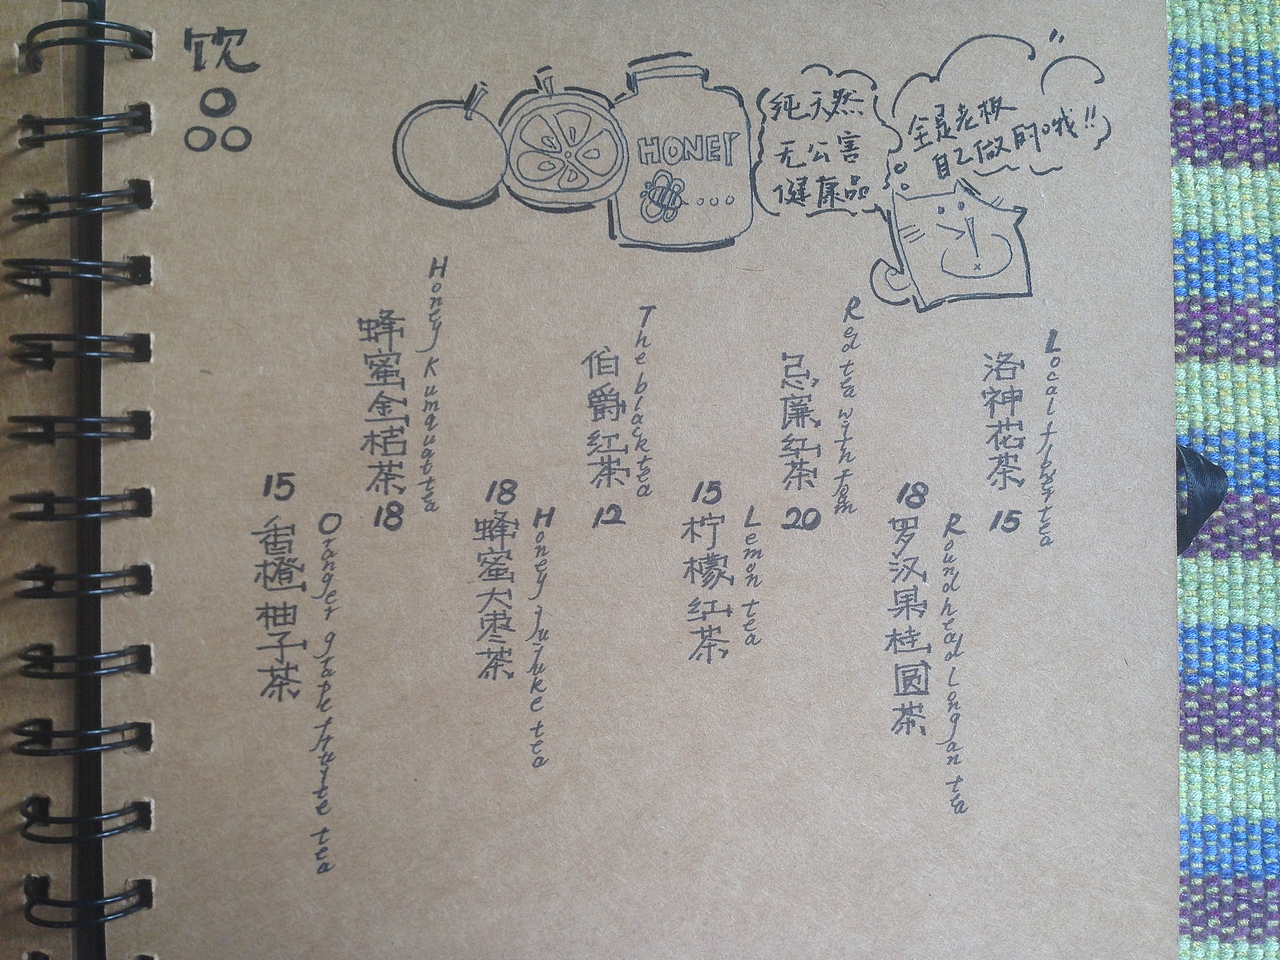 饮品
HONEY
纯天然
无公害
健康品
全是老板
自己做的哦!!
15
香橙柚子茶
Oranger grapefruite tea
蜂蜜金桔茶
18
Honey kumquat tea
18
蜂蜜大枣茶
Honey jujuke tea
伯爵红茶
12
The black tea
15
柠檬红茶
Lemon tea
忌廉红茶
20
Red tea with
18
罗汉果桂圆茶
Round head Longan tea
洛神花茶
15
Local tea